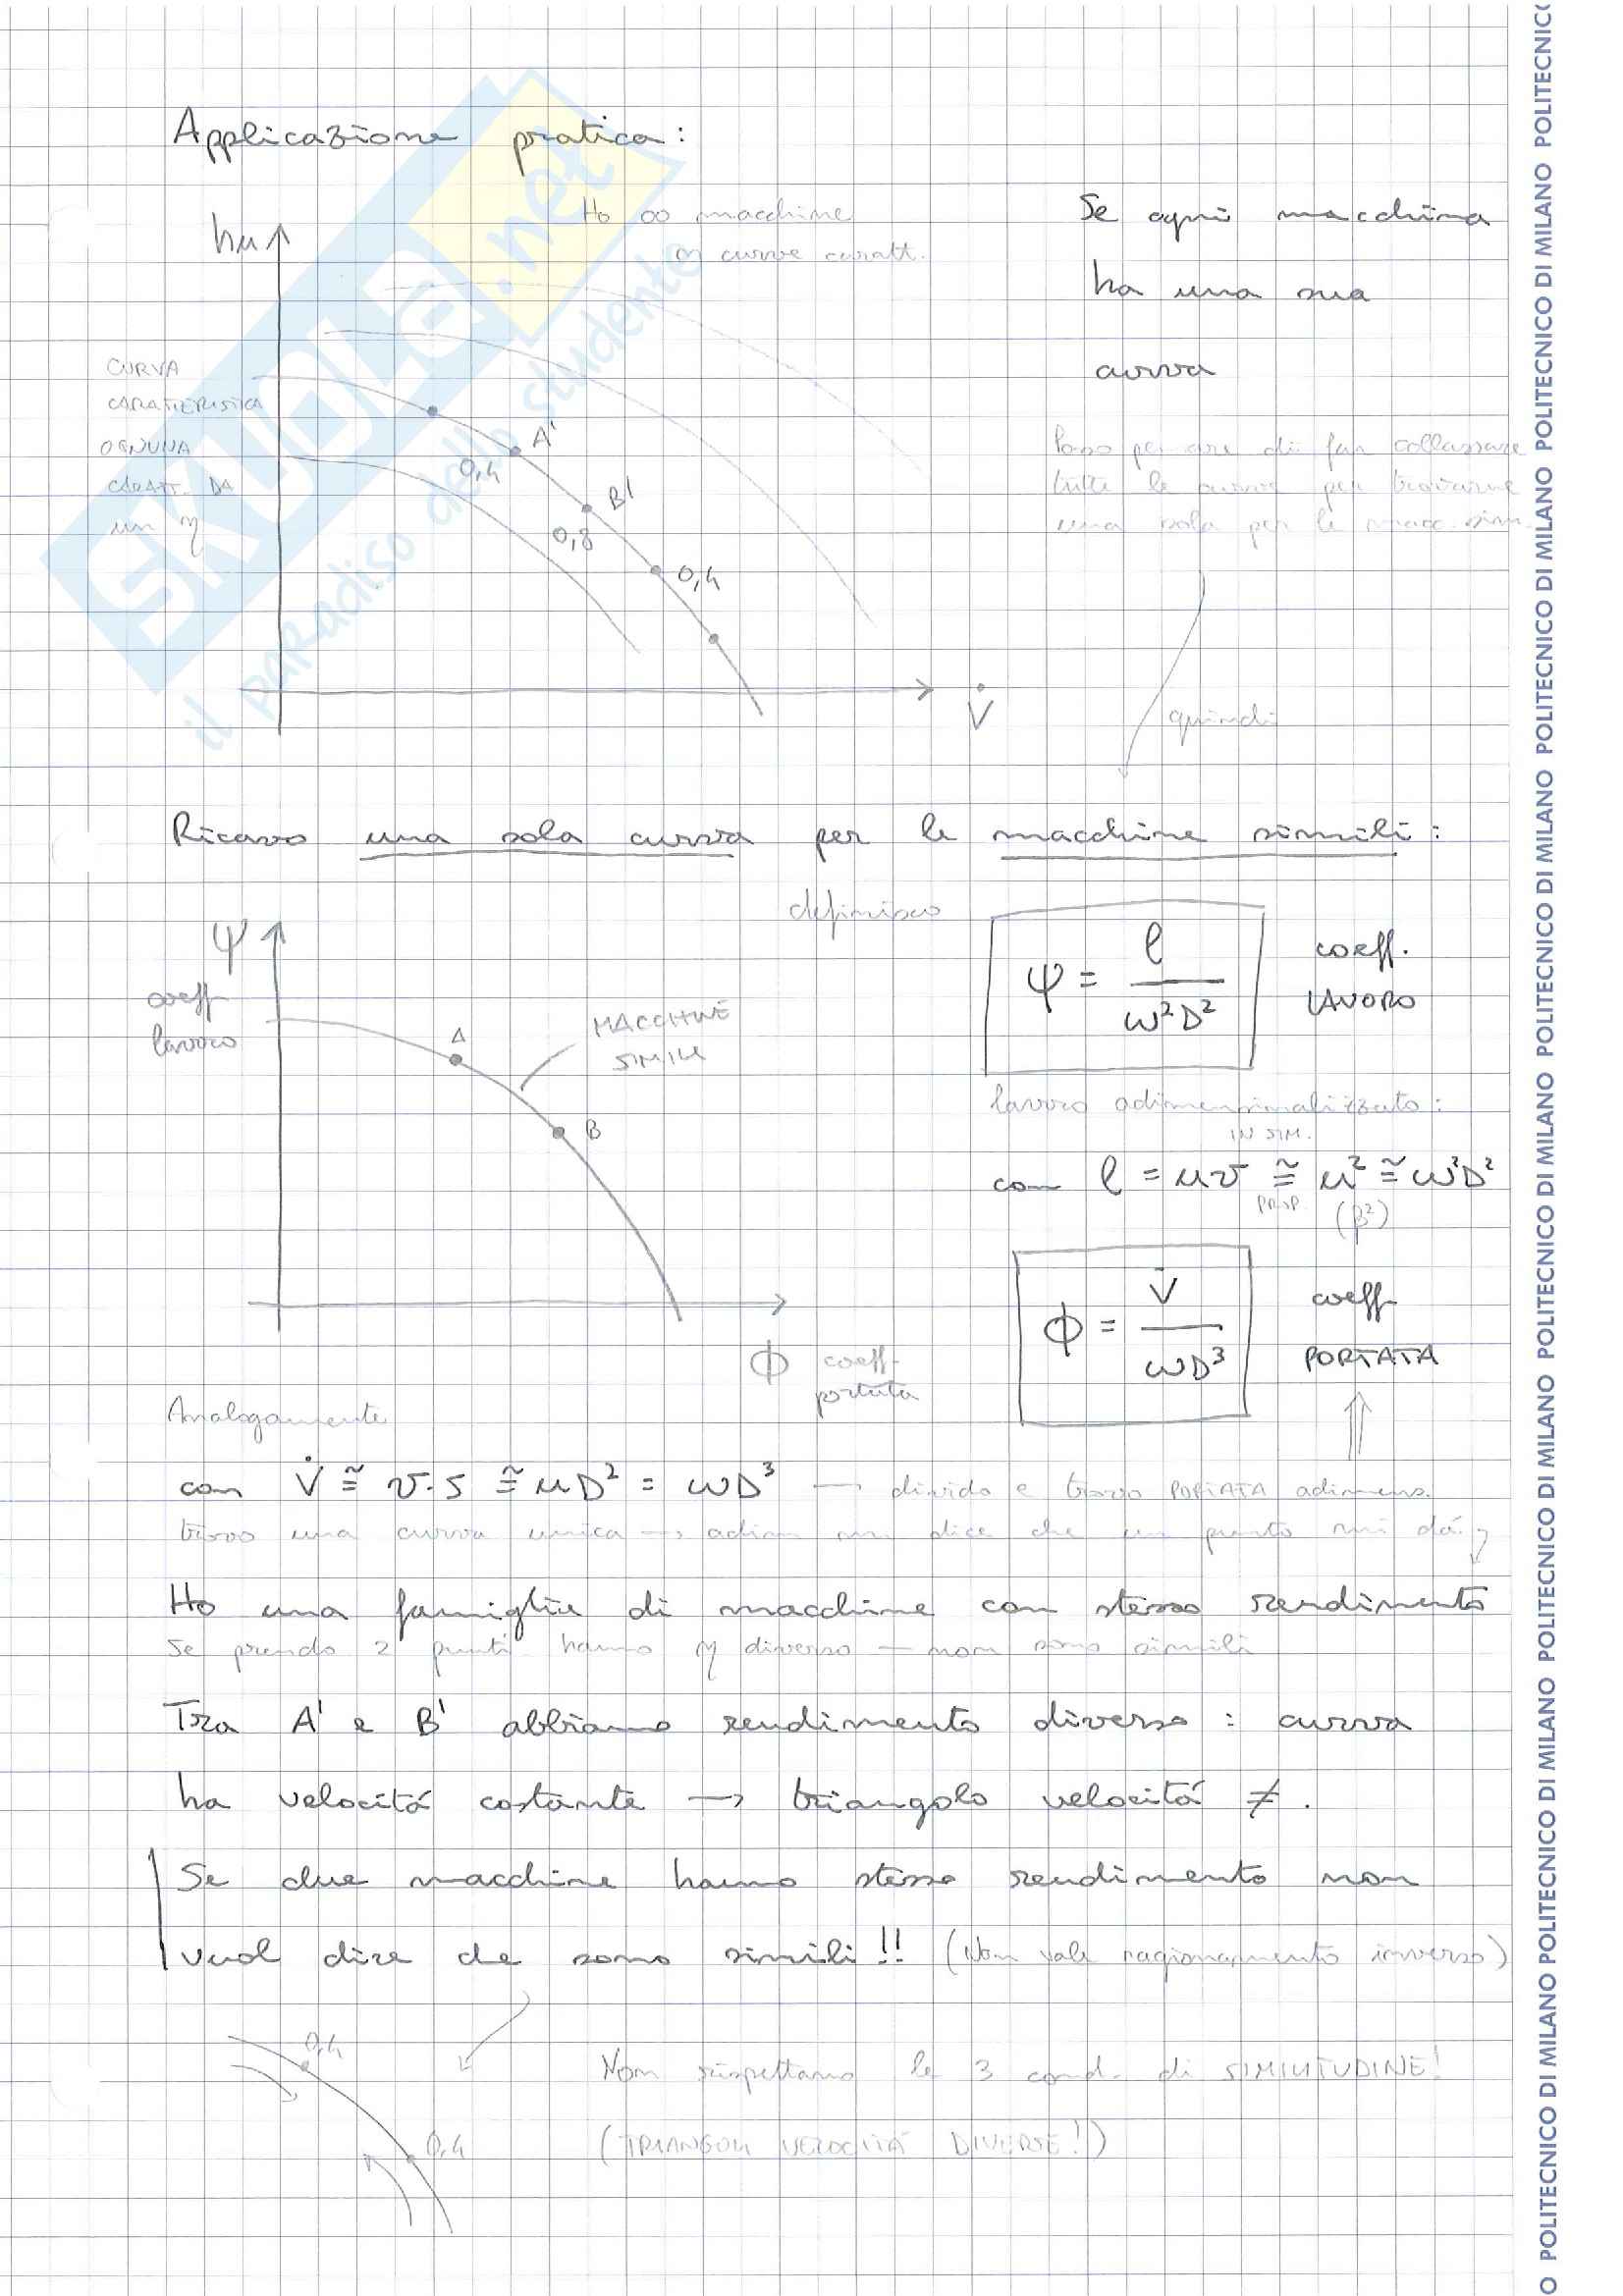 Applicazione pratica:
Ho ∞ macchine
∞ curve caratt.
hu
Se ogni macchina
ha una sua
curva
CURVA
CARATTERISTICA
OGNUNA
CARATT. DA
un η
A'
0,4
B'
0,8
0,4
V̇
Posso pensare di far collassare
tutte le curve per trovarne
una sola per le macc. sim.
quindi
Ricavo una sola curva per le macchine simili:
definisco
ψ
coeff
lavoro
A
MACCHINE
SIMILI
B
ψ = l / ω²D²
coeff.
LAVORO
lavoro adimensionalizzato:
IN SIM.
con l = uv ≅ u² ≅ ω²D²
PROP. (β²)
ϕ = V̇ / ωD³
coeff
PORTATA
ϕ coeff
portata
Analogamente
con V̇ ≅ v·S ≅ uD² = ωD³ → divido e trovo PORTATA adimens.
trovo una curva unica → adim mi dice che un punto mi dà η
Ho una famiglia di macchine con stesso rendimento
Se prendo 2 punti hanno η diverso – non sono simili
Tra A' e B' abbiamo rendimento diverso : curva
ha velocità costante → triangolo velocità ≠.
Se due macchine hanno stesso rendimento non
vuol dire che sono simili!! (Non vale ragionamento inverso)
0,4
0,4
Non rispettano le 3 cond. di SIMILITUDINE!
(TRIANGOLI VELOCITÀ DIVERSE!)
SKUOLA.net
il paradiso dello studente
O POLITECNICO DI MILANO POLITECNICO DI MILANO POLITECNICO DI MILANO POLITECNICO DI MILANO POLITECNICO DI MILANO POLITECNICO DI MILANO POLITECNICO DI MILANO POLITECNIC